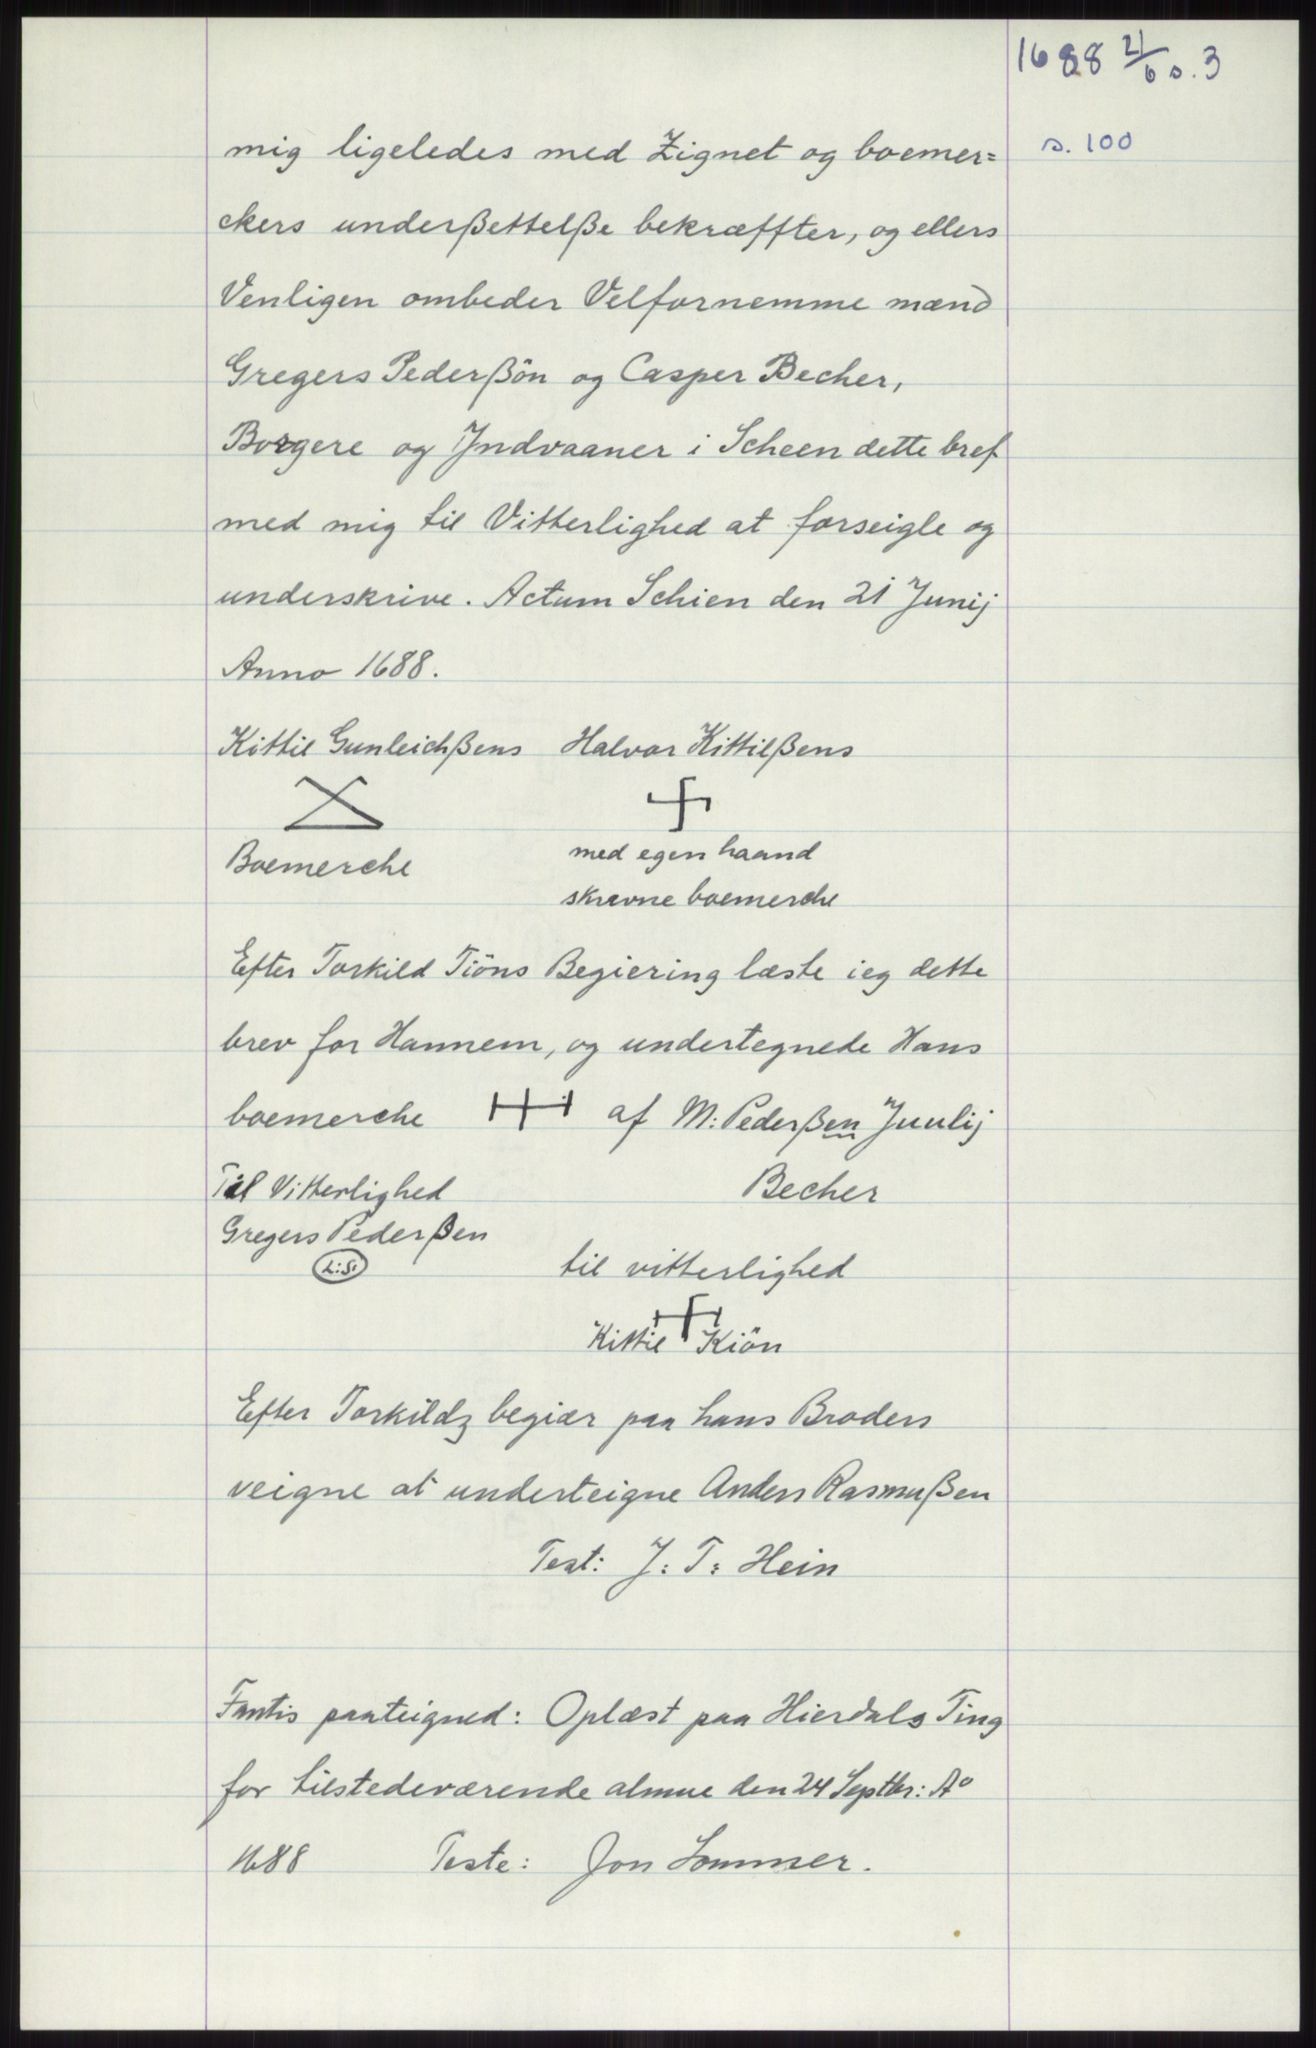 1688 21/6 s. 3
s. 100
mig ligeledes med Zignet og boemer=
ckers underßettelße bekræffter, og ellers
Venligen ombeder Velfornemme mænd
Gregers Pederßön og Casper Becher,
Borgere og Jndvaaner i Scheen dette bref
med mig til Vitterlighed at forseigle og
underskrive. Actum Schien den 21 Junij
Anno 1688.
Kittil Gunleichßens Halvor Kittilßens
Boemerche
med egen haand
skrevne boemerche
Efter Torkild Tiöns Begiering læste ieg dette
brev for Hannem, og undertegnede Hans
boemerche af M: Pederßen Juulij
Til Vitterlighed Becher
Gregers Pederßen
L:S:
til vitterlighed
Kittil Kiön
Efter Torkildz begiær paa hans Broders
veigne at underteigne Anders Rasmußen
Test: J: T: Hein
Fantis paateigned: Oplæst paa Hierdals Ting
for tilstedeværende almue den 24 Septbr: Aº
1688 Teste: Jon Sommer.